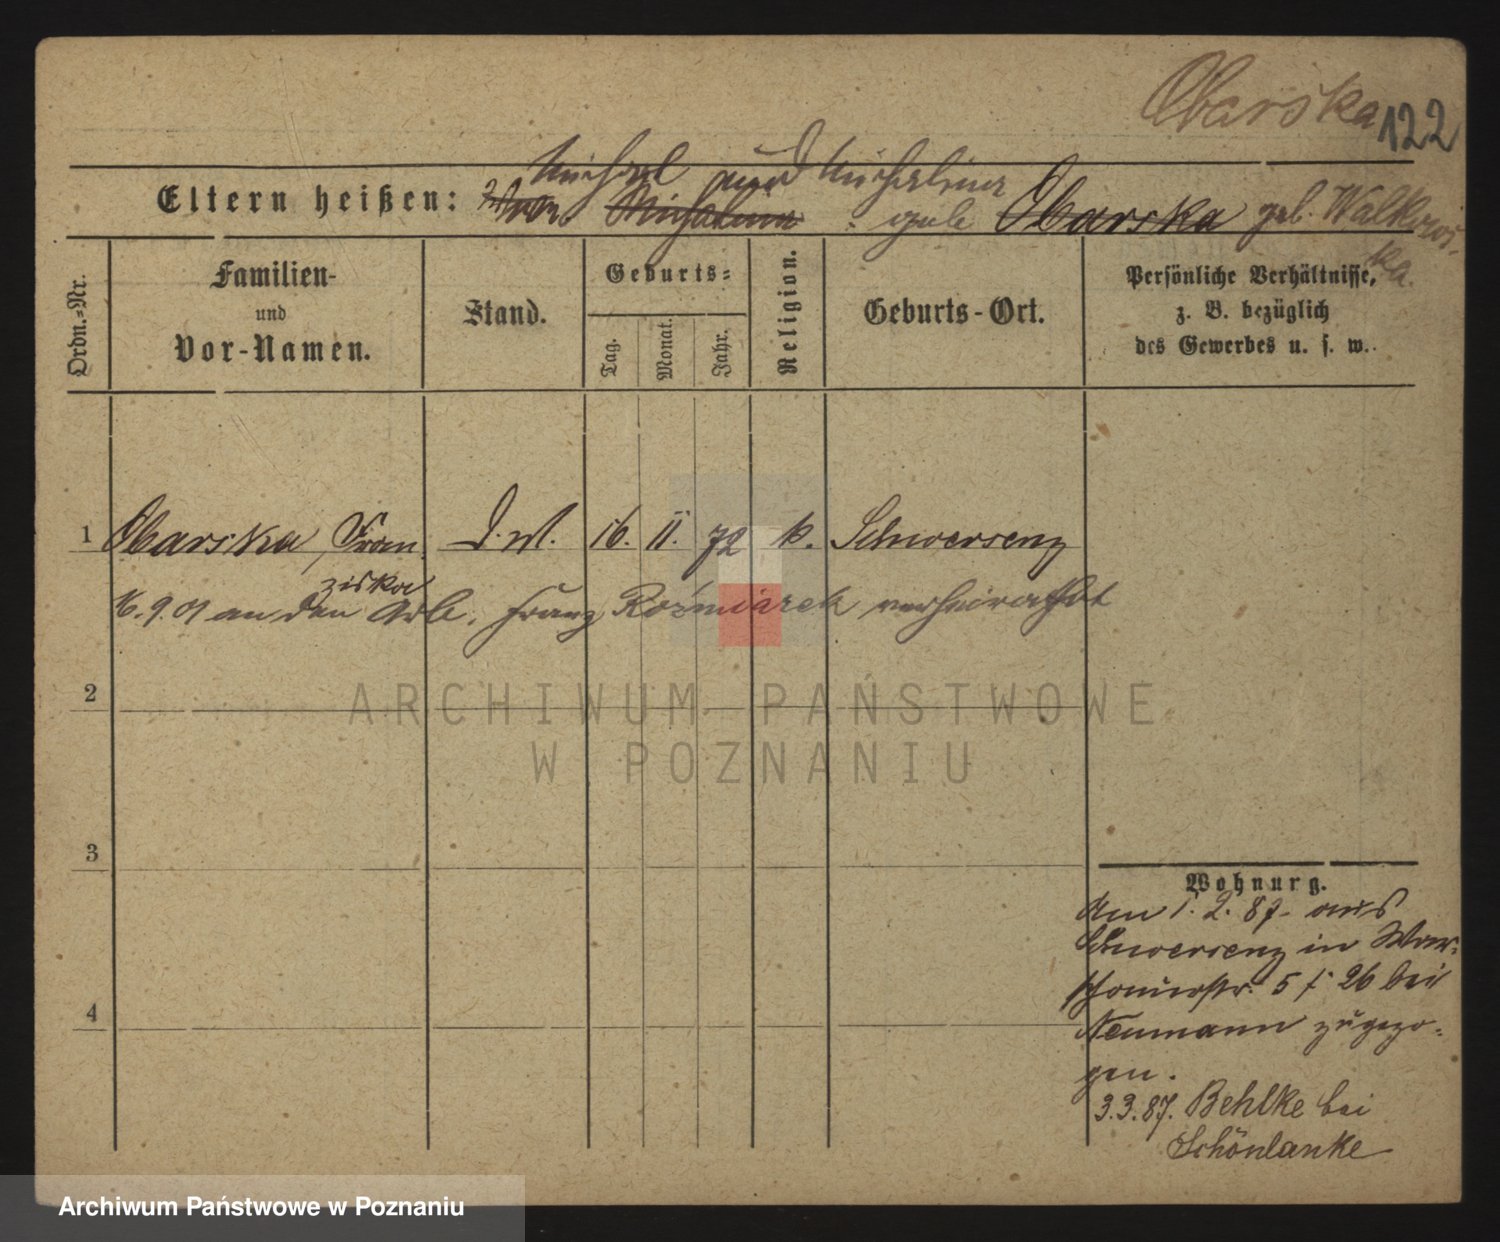 Obarska
122
Michael und Michalina
Eltern heißen: Michalina geb Obarska geb. Walkows-
ka.
Ordn.-Nr.
Familien-
und
Vor-Namen.
Stand.
Geburts-
Tag.
Monat.
Jahr.
Religion.
Geburts-Ort.
Persönliche Verhältnisse,
z. B. bezüglich
des Gewerbes u. s. w.
1 Obarska, Fran D. M. 16. II. 72 k. Schwersenz
ziska
16.9.01 an den Arb. Franz Roźmiarek verheirathet
2
3
4
Wohnung.
Am 1. 2. 87 aus
Schwersenz in War-
schauerstr. 5 f 26 bei
Neumann zugezo-
gen.
3.3.87. Behlke bei
Schönlanke
ARCHIWUM PAŃSTWOWE
W POZNANIU
Archiwum Państwowe w Poznaniu